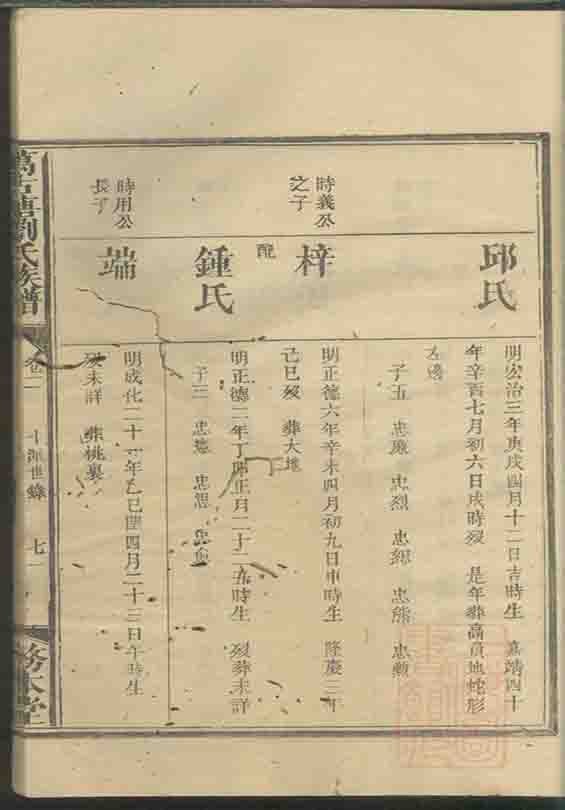 邱氏
明宏治三年庚戌四月十二日吉時生 嘉靖四十
年辛酉七月初六日戌時歿 是年葬高員地蛇形
左邊
子五 忠厥 忠烈 忠 忠熊 忠勲
時義公
之子
梓
明正德六年辛未四月初九日申時生 隆慶三年
己巳歿 葬大地
配
鍾氏
明正德二年丁卯正月二十二 時生 歿葬未詳
子三 忠 忠思 忠
時用公
長子
端
明成化二十一年乙巳閏四月二十三日午時生
歿未詳 葬桃裏
劉氏族譜
卷二
十派世錄
七
務本堂